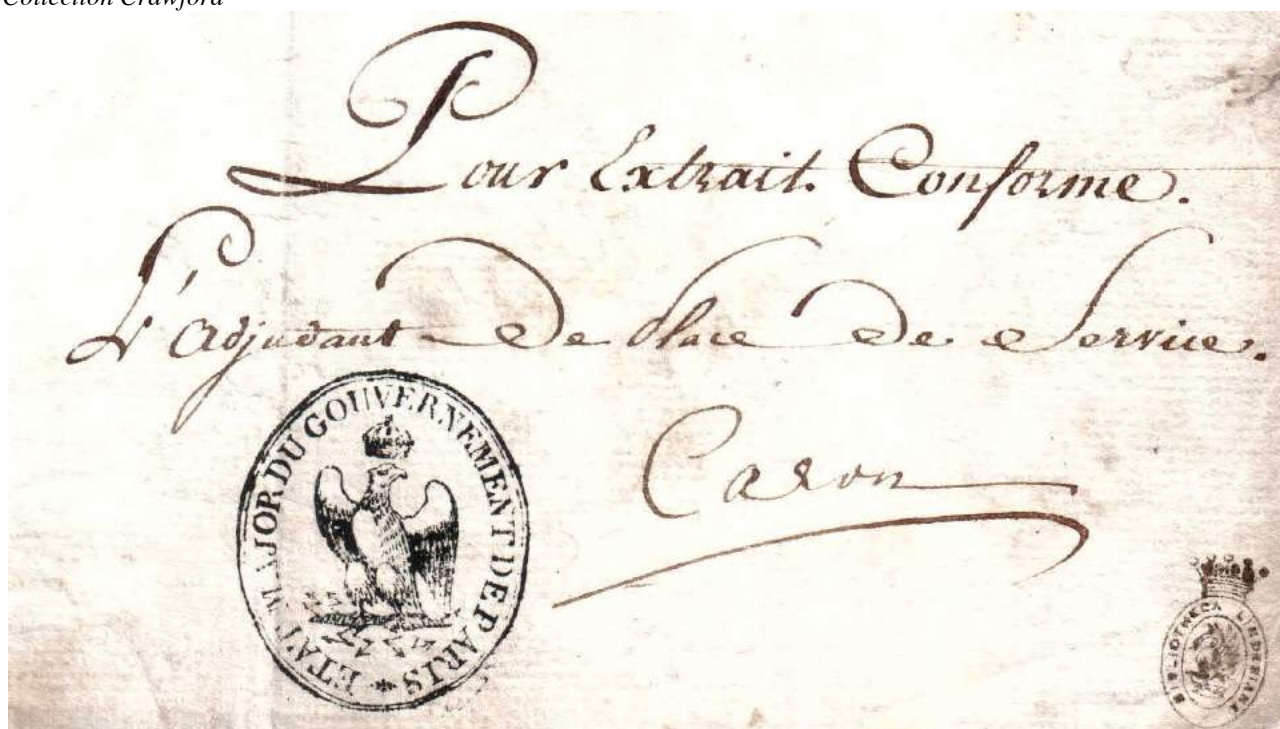 Collection Crawford
Pour Extrait Conforme.
L'adjudant De Place De Service.
Caron
ETAT MAJOR DU GOUVERNEMENT DE PARIS
BIBLIOTHECA LINDESIANA